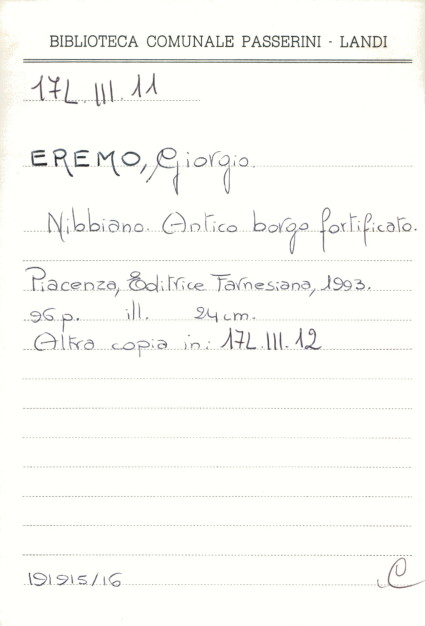 BIBLIOTECA COMUNALE PASSERINI - LANDI
17L.III.11
EREMO, Giorgio.
Nibbiano. Antico borgo fortificato.
Piacenza, Editrice Farnesiana, 1993.
96 p. ill. 24 cm.
Altra copia in: 17L.III.12
191915/16
C